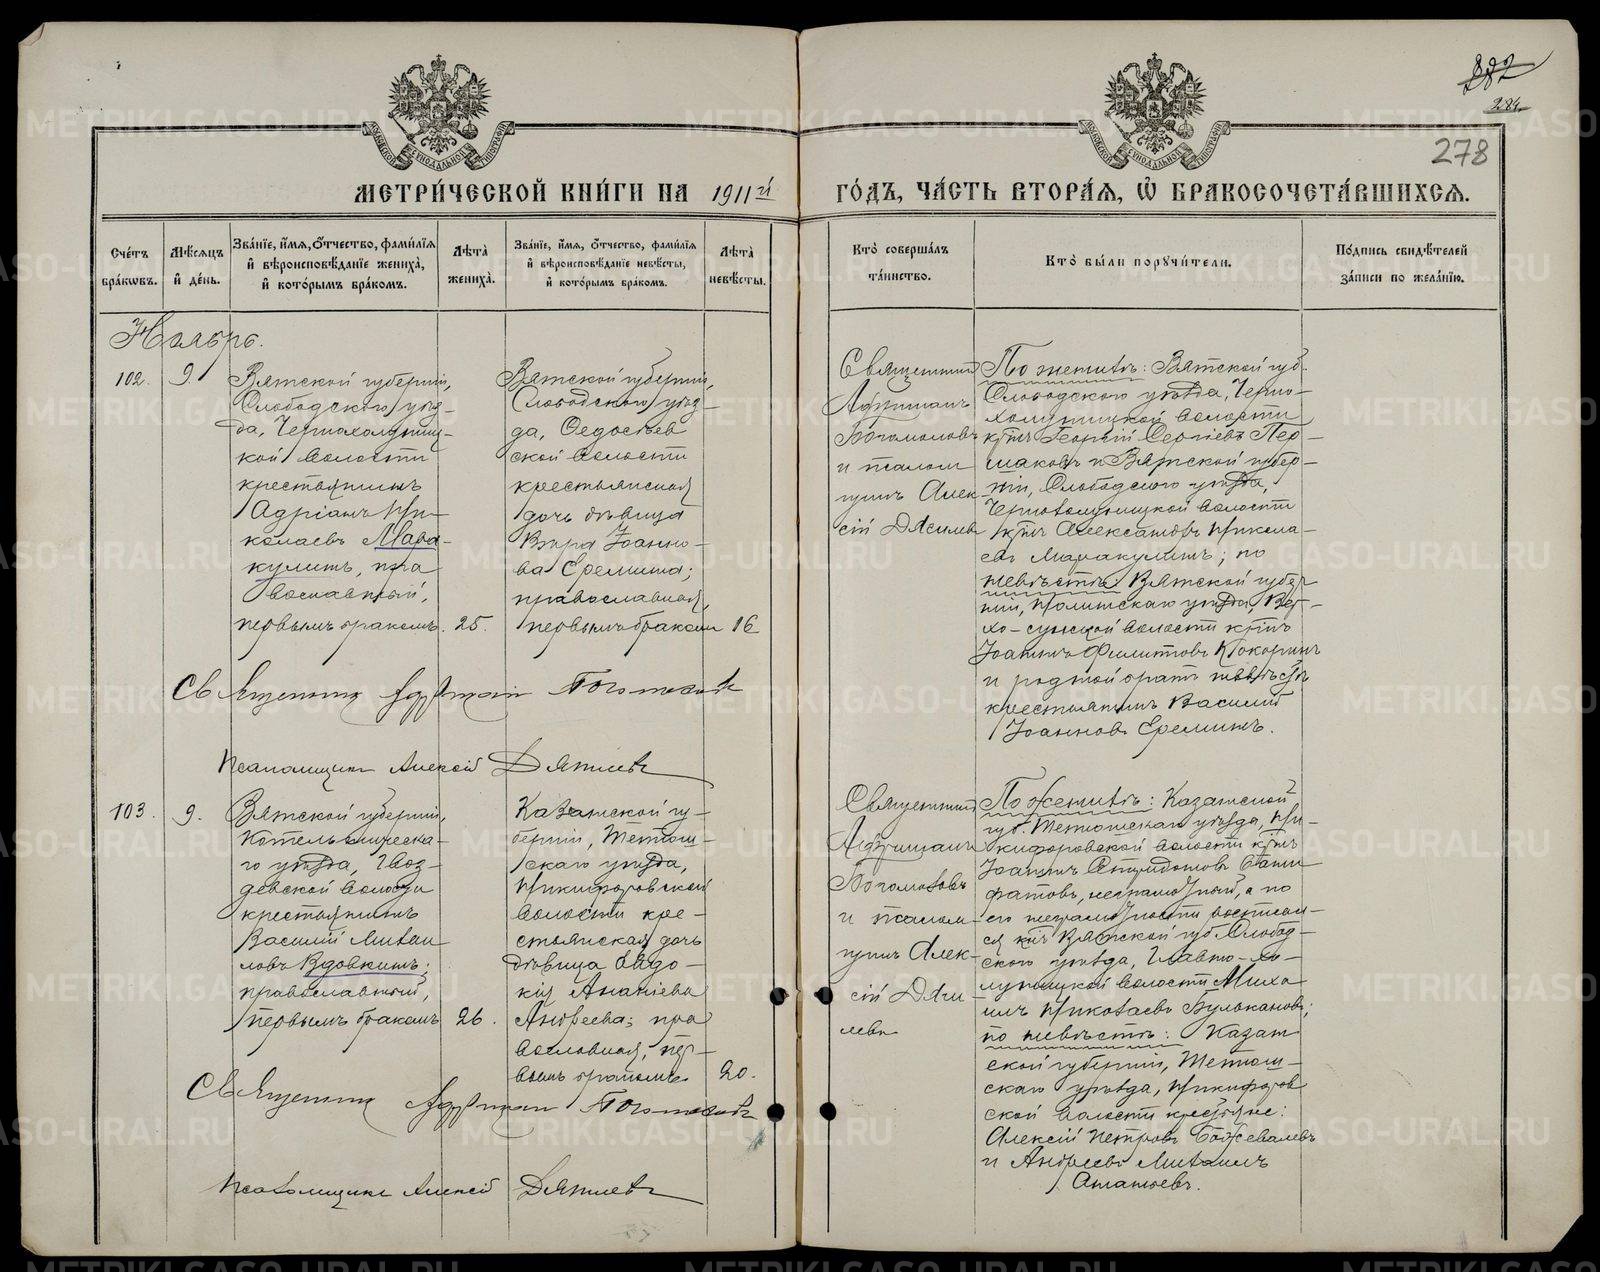 282
284
278
МЕТРИ́ЧЕСКОЙ КНИ́ГИ НА 1911й
ГО́ДЪ, ЧА́СТЬ ВТОРА́Я, Ѡ БРАКОСОЧЕТА́ВШИХСЯ.
Сче́тъ бра́кѡвъ.
Мѣ́сяцъ и҆ де́нь.
Зва́нїе, и҆́мя, ѻ҆́тчество, фами́лїя и҆ вѣроисповѣ́данїе жениха̀, и҆ кото́рымъ бра́комъ.
Лѣта̀ жениха̀.
Зва́нїе, и҆́мя, ѻ҆́тчество, фами́лїя и҆ вѣроисповѣ́данїе невѣ́сты, и҆ кото́рымъ бра́комъ.
Лѣта̀ невѣ́сты.
Кто̀ соверша́лъ та́инство.
Кто̀ бы́ли порꙋчи́тели.
По́дпись свидѣ́телей за́писи по жела́нїю.
Ноябрь.
102.
9
Вятской губерніи,
Слободского уѣз-
да, Чернохолуниц-
кой волости
крестьянинъ
Адріанъ Ни-
колаевъ Мара-
кулинъ, пра
вославный,
первымъ бракомъ.
25.
Вятской губерніи,
Слободского уѣз-
да, Федосѣев
ской волости
крестьянская
дочь дѣвица
Вѣра Іоанно-
ва Еремина;
православная,
первымъ бракомъ
16
Священникъ
Адріанъ
Богомоловъ
и псалом
щикъ Алек-
сій Дягилевъ
По женихѣ: Вятской губ.
Слободского уѣзда, Черно-
холуницкой волости
кр̃нъ Георгій Сергіевъ Пер-
маковъ и Вятской губер-
ніи, Слободского уѣзда,
Чернохолуницкой волости
кр̃нъ Александръ Никола-
евъ Маракулинъ; по
невѣстѣ: Вятской губер
ніи, Нолинскаго уѣзда, Вер-
хо-сунской волости кр̃нъ
Іоаннъ Филиповъ Кокоринъ
и родной братъ невѣсты
крестьянинъ Василій
Іоанновъ Ереминъ.
Священникъ Богомоловъ
Псаломщикъ Алексій Дягилевъ
103.
9.
Вятской губерніи,
Котельническа-
го уѣзда, Гвоз-
девской волости
крестьянинъ
Василій Михаи
ловъ Вдовкинъ;
православный,
первымъ бракомъ
26.
Казанской гу-
берніи, Тетюш-
скаго уѣзда,
Никифоровской
волости кре-
стьянская дочь
дѣвица Евдо-
кія Ананіева
Андреева; пра
вославная, пер-
вымъ бракомъ
20.
Священникъ
Богомоловъ
и псалом-
щикъ Алек-
сій Дяги-
левъ
По женихѣ: Казанской
губ. Тетюшскаго уѣзда, Ни-
кифоровской волости кр̃нъ
Іоаннъ
неграмотный, а по
его неграмотности росписал-
ся кр̃нъ Вятской губ. Слобод-
ского уѣзда, Главно-хо-
луницкой волости Миха
илъ Николаевъ Булькановъ;
по невѣстѣ: Казан
ской губерніи, Тетюш-
скаго уѣзда, Никифоров
ской волости крестьяне:
Алексій Петровъ
и Андреевъ Михаилъ
Ананьевъ.
Священникъ Богомоловъ
Псаломщикъ Алексій Дягилевъ
METRIKI.GASO-URAL.RU